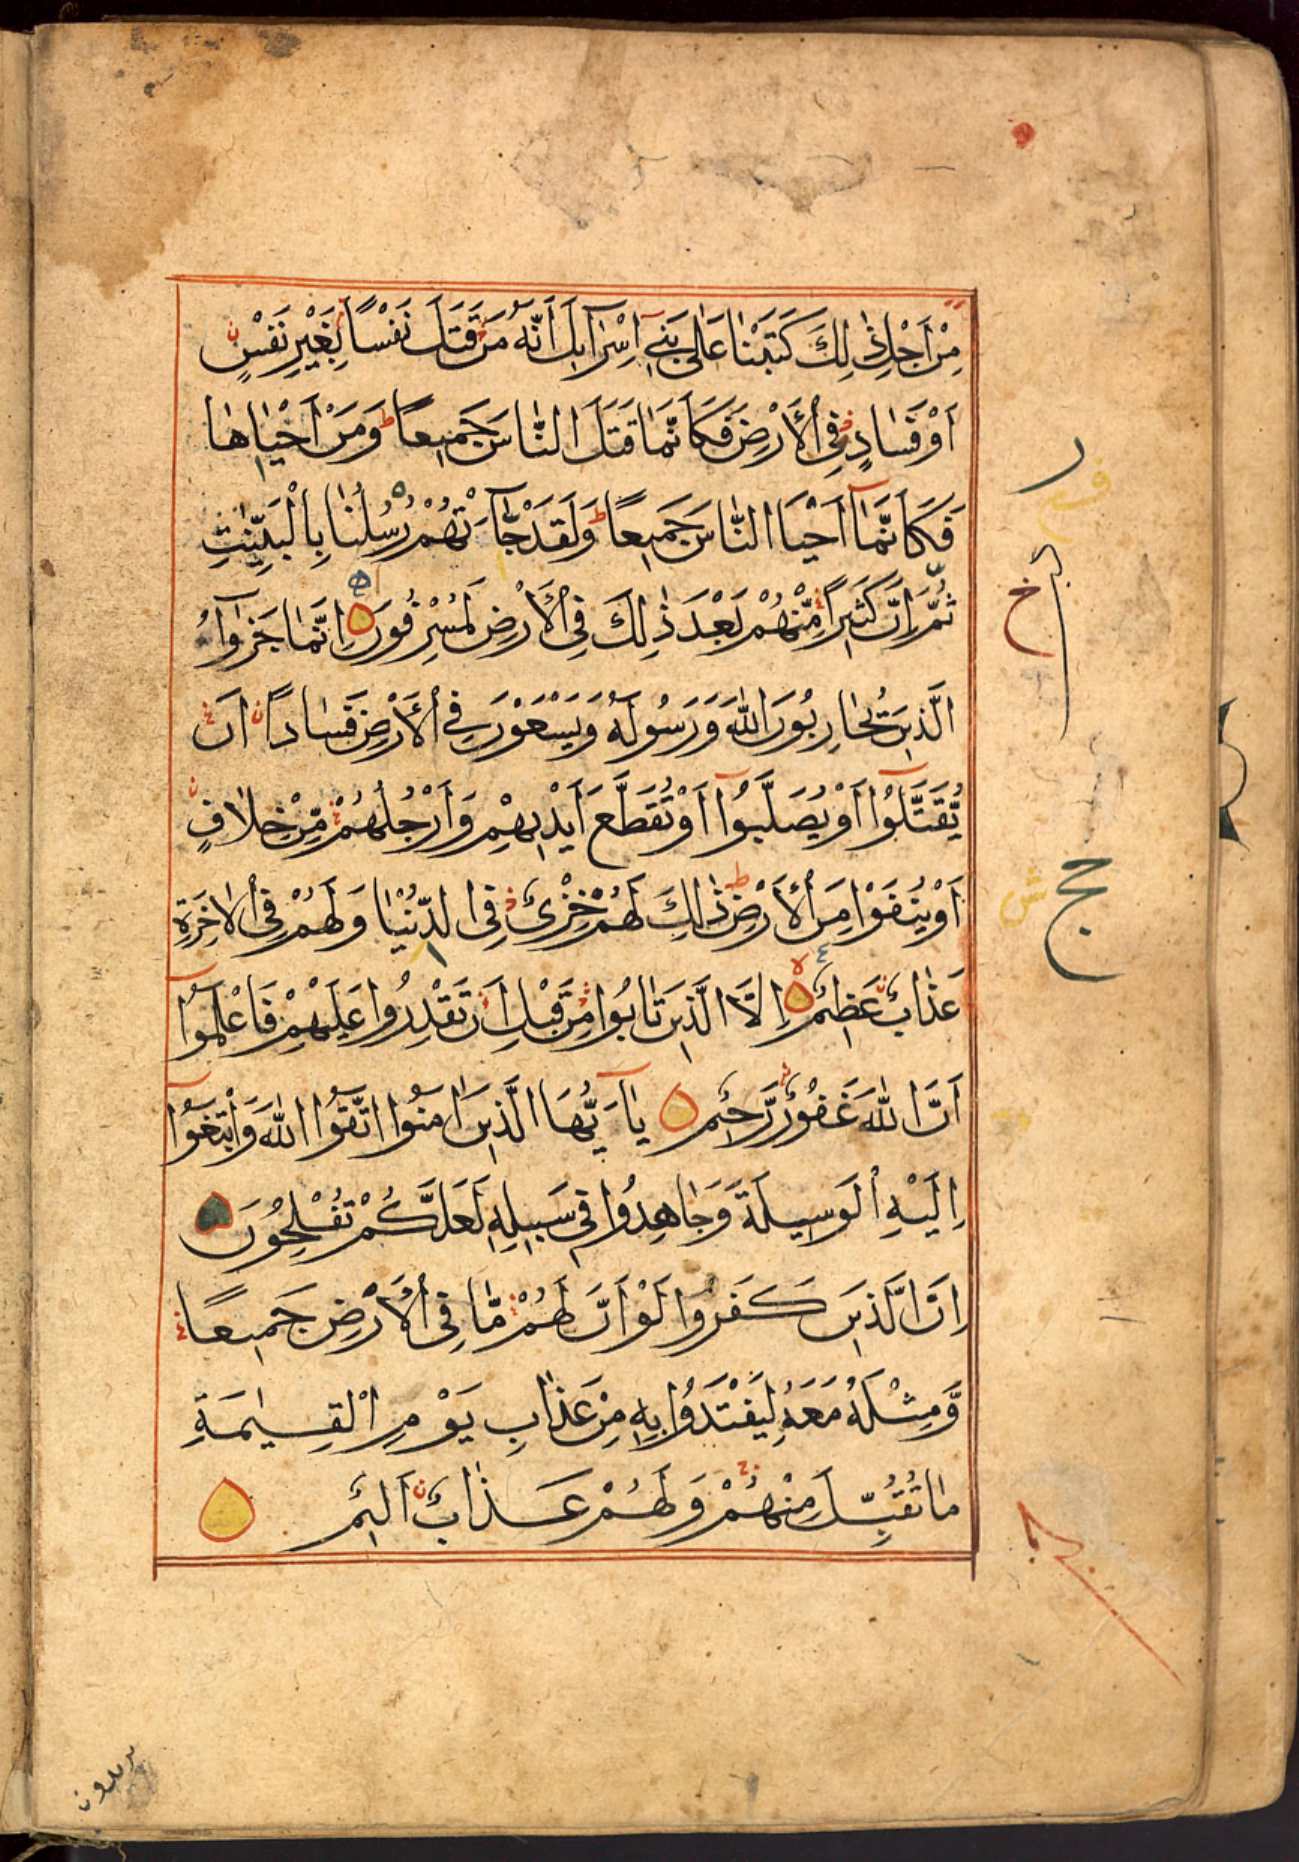 مِنْ اَجْلِ ذٰلِكَ كَتَبْنٰا عَلٰى بَنِى اِسْرٰٓاىِٕلَ اَنَّهُ مَنْ قَتَلَ نَفْسًا بِغَيْرِ نَفْسٍ
اَوْ فَسٰادٍ فِى الْاَرْضِ فَكَاَنَّمٰا قَتَلَ النّٰاسَ جَمِيعًا ط وَمَنْ اَحْيٰاهٰا
فَكَاَنَّمٰٓا اَحْيَا النّٰاسَ جَمِيعًا ط وَلَقَدْ جٰٓاءَتْهُمْ رُسُلُنٰا بِالْبَيِّنٰتِ
ثُمَّ اِنَّ كَثِيرًا مِّنْهُمْ بَعْدَ ذٰلِكَ فِى الْاَرْضِ لَمُسْرِفُونَ اِنَّمٰا جَزٰٓاؤُا
الَّذِينَ يُحٰارِبُونَ اللّٰهَ وَرَسُولَهُ وَيَسْعَوْنَ فِى الْاَرْضِ فَسٰادًا اَنْ
يُّقَتَّلُوٓا اَوْ يُصَلَّبُوٓا اَوْ تُقَطَّعَ اَيْدِيهِمْ وَاَرْجُلُهُمْ مِّنْ خِلٰافٍ
اَوْ يُنْفَوْا مِنَ الْاَرْضِ ط ذٰلِكَ لَهُمْ خِزْىٌ فِى الدُّنْيٰا وَلَهُمْ فِى الْاٰخِرَةِ
عَذٰابٌ عَظِيمٌ اِلَّا الَّذِينَ تٰابُوا مِنْ قَبْلِ اَنْ تَقْدِرُوا عَلَيْهِمْ فَاعْلَمُوٓا
اَنَّ اللّٰهَ غَفُورٌ رَّحِيمٌ يٰٓا اَيُّهَا الَّذِينَ اٰمَنُوا اتَّقُوا اللّٰهَ وَابْتَغُوٓا
اِلَيْهِ الْوَسِيلَةَ وَجٰاهِدُوا فِى سَبِيلِهِ لَعَلَّكُمْ تُفْلِحُونَ
اِنَّ الَّذِينَ كَفَرُوا لَوْ اَنَّ لَهُمْ مّٰا فِى الْاَرْضِ جَمِيعًا
وَّمِثْلَهُ مَعَهُ لِيَفْتَدُوا بِهِ مِنْ عَذٰابِ يَوْمِ الْقِيٰمَةِ
مٰا تُقُبِّلَ مِنْهُمْ وَلَهُمْ عَذٰابٌ اَلِيمٌ
يريدون